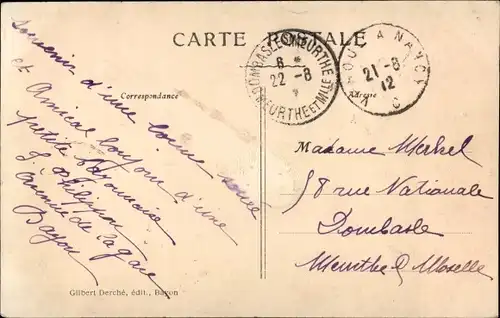 CARTE POSTALE
Correspondance
Adresse
DOMBASLE-S-MEURTHE
8 *
22 -8
MEURTHE ET MLLE
A NANCY
21 -8
12
Souvenir d'une bonne soirée
et Amical bonjour d'une
petite
L. Philippon
de la gare
Bayon
Madame Merkel
58 rue Nationale
Dombasle
Meurthe & Moselle
Gilbert Derché, édit., Bayon